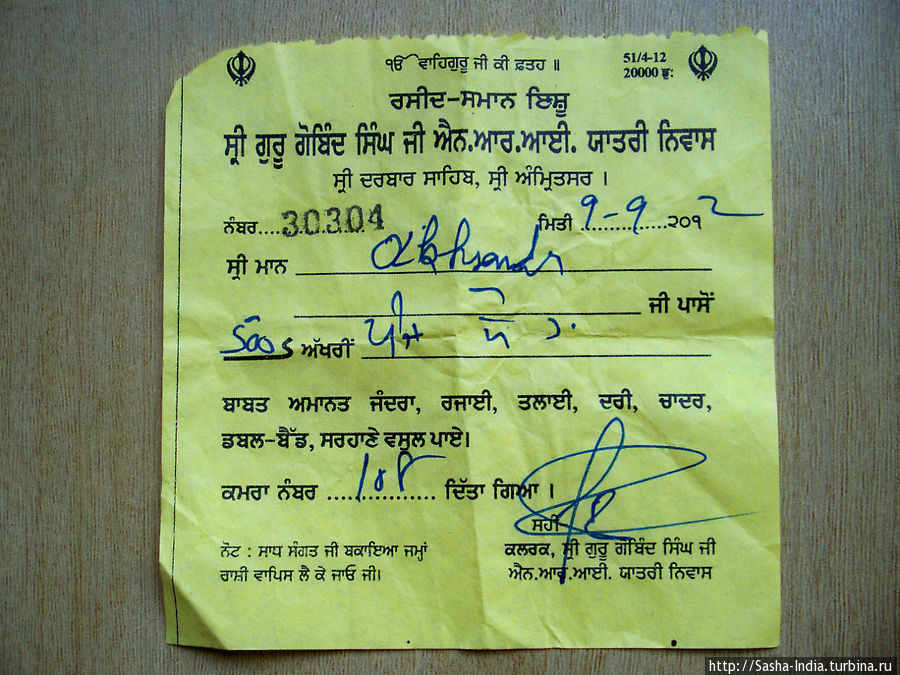 ੴ ਵਾਹਿਗੁਰੂ ਜੀ ਕੀ ਫ਼ਤਹ ॥
51/4-12
20000 ਛੁ:
ਰਸੀਦ-ਸਮਾਨ ਇਸ਼ੂ
ਸ੍ਰੀ ਗੁਰੂ ਗੋਬਿੰਦ ਸਿੰਘ ਜੀ ਐਨ.ਆਰ.ਆਈ. ਯਾਤਰੀ ਨਿਵਾਸ
ਸ੍ਰੀ ਦਰਬਾਰ ਸਾਹਿਬ, ਸ੍ਰੀ ਅੰਮ੍ਰਿਤਸਰ ।
ਨੰਬਰ....30304 ਮਿਤੀ 9-9......੨੦੧2
ਸ੍ਰੀ ਮਾਨ
ਜੀ ਪਾਸੋਂ
ਅੱਖਰੀਂ ਪੰਜ
ਬਾਬਤ ਅਮਾਨਤ ਜੰਦਰਾ, ਰਜਾਈ, ਤਲਾਈ, ਦਰੀ, ਚਾਦਰ,
ਡਬਲ-ਬੈੱਡ, ਸਰਹਾਣੇ ਵਸੂਲ ਪਾਏ।
ਕਮਰਾ ਨੰਬਰ ................ ਦਿੱਤਾ ਗਿਆ ।
ਸਹੀ
ਨੋਟ : ਸਾਧ ਸੰਗਤ ਜੀ ਬਕਾਇਆ ਜਮ੍ਹਾਂ
ਰਾਸ਼ੀ ਵਾਪਿਸ ਲੈ ਕੇ ਜਾਓ ਜੀ।
ਕਲਰਕ, ਸ੍ਰੀ ਗੁਰੂ ਗੋਬਿੰਦ ਸਿੰਘ ਜੀ
ਐਨ.ਆਰ.ਆਈ. ਯਾਤਰੀ ਨਿਵਾਸ
http://Sasha-India.turbina.ru